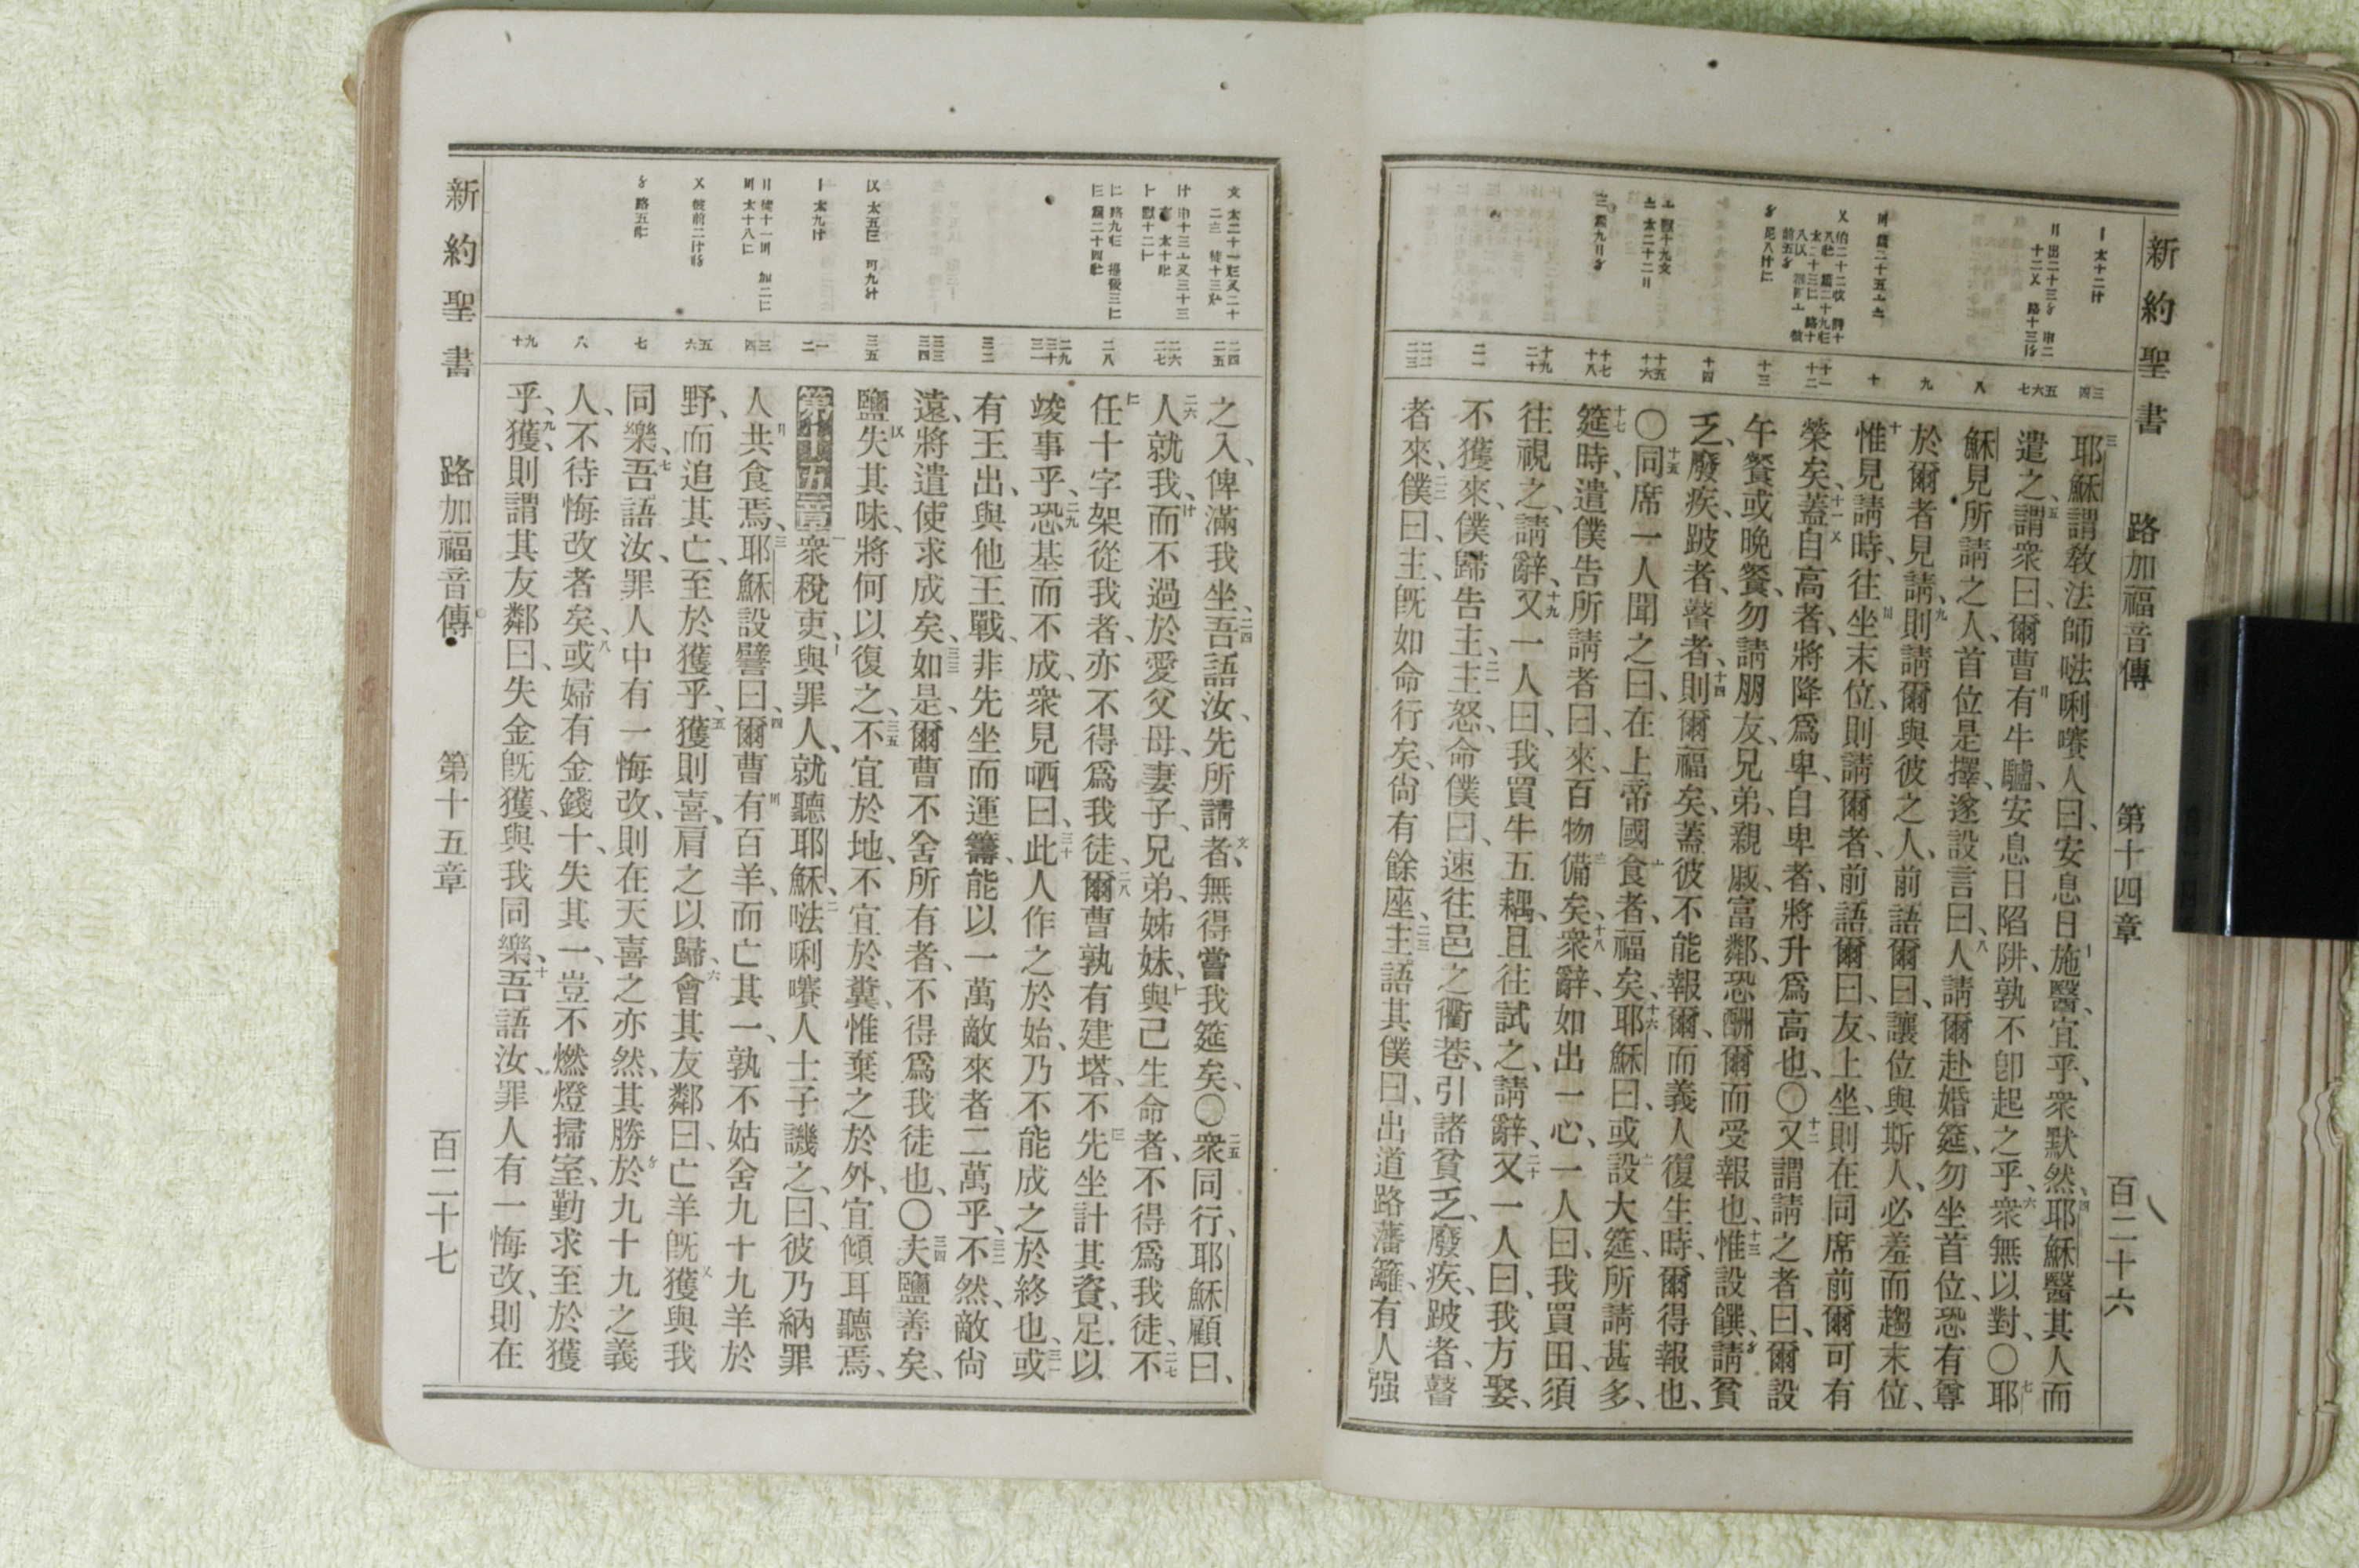 新約聖書 路加福音傳 第十四章 百二十六
三四
五六七
八
九
十
十一十二
十三
十四
十五十六
十七十八
十九二十
二一
二二二三
耶穌謂敎法師𠵽唎㘔人曰、安息日施醫、宜乎、衆默然、耶穌醫其人而
遣之、謂衆曰、爾曹有牛驢、安息日陷阱、孰不卽起之乎、衆無以對、〇耶
穌見所請之人、首位是擇、遂設言曰、人請爾赴婚筵、勿坐首位、恐有尊
於爾者見請、則請爾與彼之人、前語爾曰、讓位與斯人、必羞而趨末位、
惟見請時、往坐末位、則請爾者、前語爾曰、友、上坐、則在同席前爾可有
榮矣、蓋自高者、將降爲卑、自卑者、將升爲高也、〇又謂請之者曰、爾設
午餐或晚餐、勿請朋友、兄弟、親戚、富鄰、恐酬爾而受報也、惟設饌、請貧
乏、廢疾、跛者、瞽者、則爾福矣、蓋彼不能報爾、而義人復生時、爾得報也、
〇同席一人聞之曰、在上帝國食者、福矣、耶穌曰、或設大筵、所請甚多、
筵時、遣僕告所請者曰、來、百物備矣、衆辭、如出一心、一人曰、我買田、須
往視之、請辭、又一人曰、我買牛五耦、且往試之、請辭、又一人曰、我方娶、
不獲來、僕歸告主、主怒、命僕曰、速往邑之衢巷、引諸貧乏、廢疾、跛者、瞽
者來、僕曰、主、旣如命行矣、尙有餘座、主語其僕曰、出道路藩籬、有人强
二四二五
二六二七
二八
二九三十三一
三二
三三三四
三五
一二
三四
五六
七
八
九十
之入、俾滿我坐、吾語汝、先所請者、無得嘗我筵矣、〇衆同行、耶穌顧曰、
人就我、而不過於愛父母、妻子、兄弟、姊妹、與己生命者、不得爲我徒、不
任十字架從我者、亦不得爲我徒、爾曹孰有建塔、不先坐計其資、足以
竣事乎、恐基而不成、衆見哂曰、此人作之於始、乃不能成之於終也、或
有王出、與他王戰、非先坐而運籌、能以一萬敵來者二萬乎、不然、敵尙
遠、將遣使求成矣、如是、爾曹不舍所有者、不得爲我徒也、〇夫鹽善矣、
鹽失其味、將何以復之、不宜於地、不宜於糞、惟棄之於外、宜傾耳聽焉、
第十五章 衆稅吏、與罪人、就聽耶穌、𠵽唎㘔人士子譏之、曰、彼乃納罪
人、共食焉、耶穌設譬曰、爾曹有百羊、而亡其一、孰不姑舍九十九羊於
野、而追其亡、至於獲乎、獲則喜、肩之以歸、會其友鄰曰、亡羊旣獲、與我
同樂、吾語汝、罪人中有一悔改、則在天喜之亦然、其勝於九十九之義
人、不待悔改者矣、或婦有金錢十、失其一、豈不燃燈掃室、勤求至於獲
乎、獲、則謂其友鄰曰、失金旣獲、與我同樂、吾語汝、罪人有一悔改、則在
新約聖書 路加福音傳 第十五章 百二十七